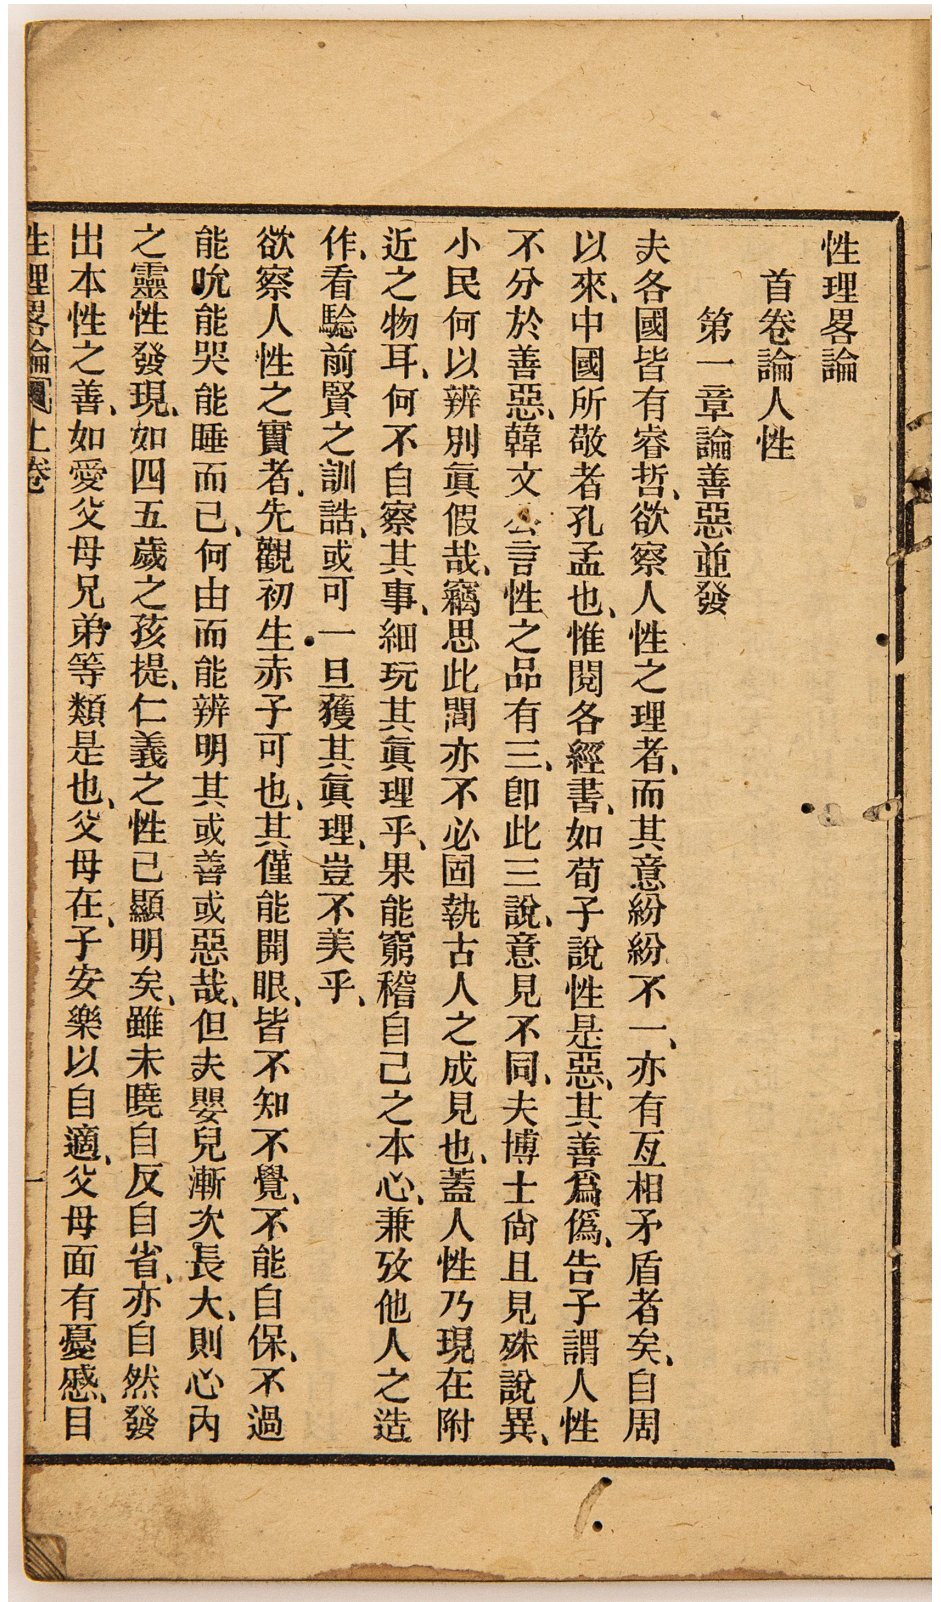 性理畧論
首卷論人性
第一章論善惡並發
夫各國皆有睿哲、欲察人性之理者、而其意紛紛不一、亦有亙相矛盾者矣、自周
以來、中國所敬者孔孟也、惟閱各經書、如荀子說性是惡、其善爲僞、告子謂人性
不分於善惡、韓文公言性之品有三、卽此三說、意見不同、夫博士尙且見殊說異、
小民何以辨別眞假哉、竊思此間亦不必固執古人之成見也、蓋人性乃現在附
近之物耳、何不自察其事、細玩其眞理乎、果能窮稽自己之本心、兼攷他人之造
作、看驗前賢之訓誥、或可一旦獲其眞理、豈不美乎、
欲察人性之實者、先觀初生赤子可也、其僅能開眼、皆不知不覺、不能自保、不過
能吮能哭能睡而已、何由而能辨明其或善或惡哉、但夫嬰兒漸次長大、則心內
之靈性發現、如四五歲之孩提、仁義之性已顯明矣、雖未曉自反自省、亦自然發
出本性之善、如愛父母兄弟等類是也、父母在、子安樂以自適、父母面有憂慼、目
性理畧論 上卷 一